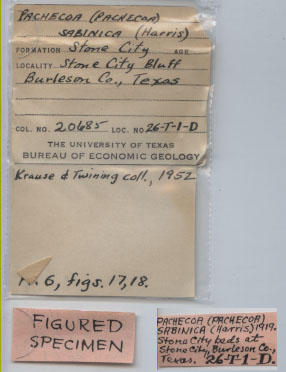 PACHECOA (PACHECOA)
SABINICA (Harris)
FORMATION Stone City AGE
LOCALITY Stone City Bluff
Burleson Co., Texas
COL. NO. 20685 LOC. NO. 26-T-1-D
THE UNIVERSITY OF TEXAS
BUREAU OF ECONOMIC GEOLOGY
Krause & Twining coll., 1952
6, figs. 17,18.
FIGURED
SPECIMEN
PACHECOA (PACHECOA)
SABINICA (Harris) 1919.
Stone City beds at
Stone City, Burleson Co.,
Texas. 26-T-1-D.